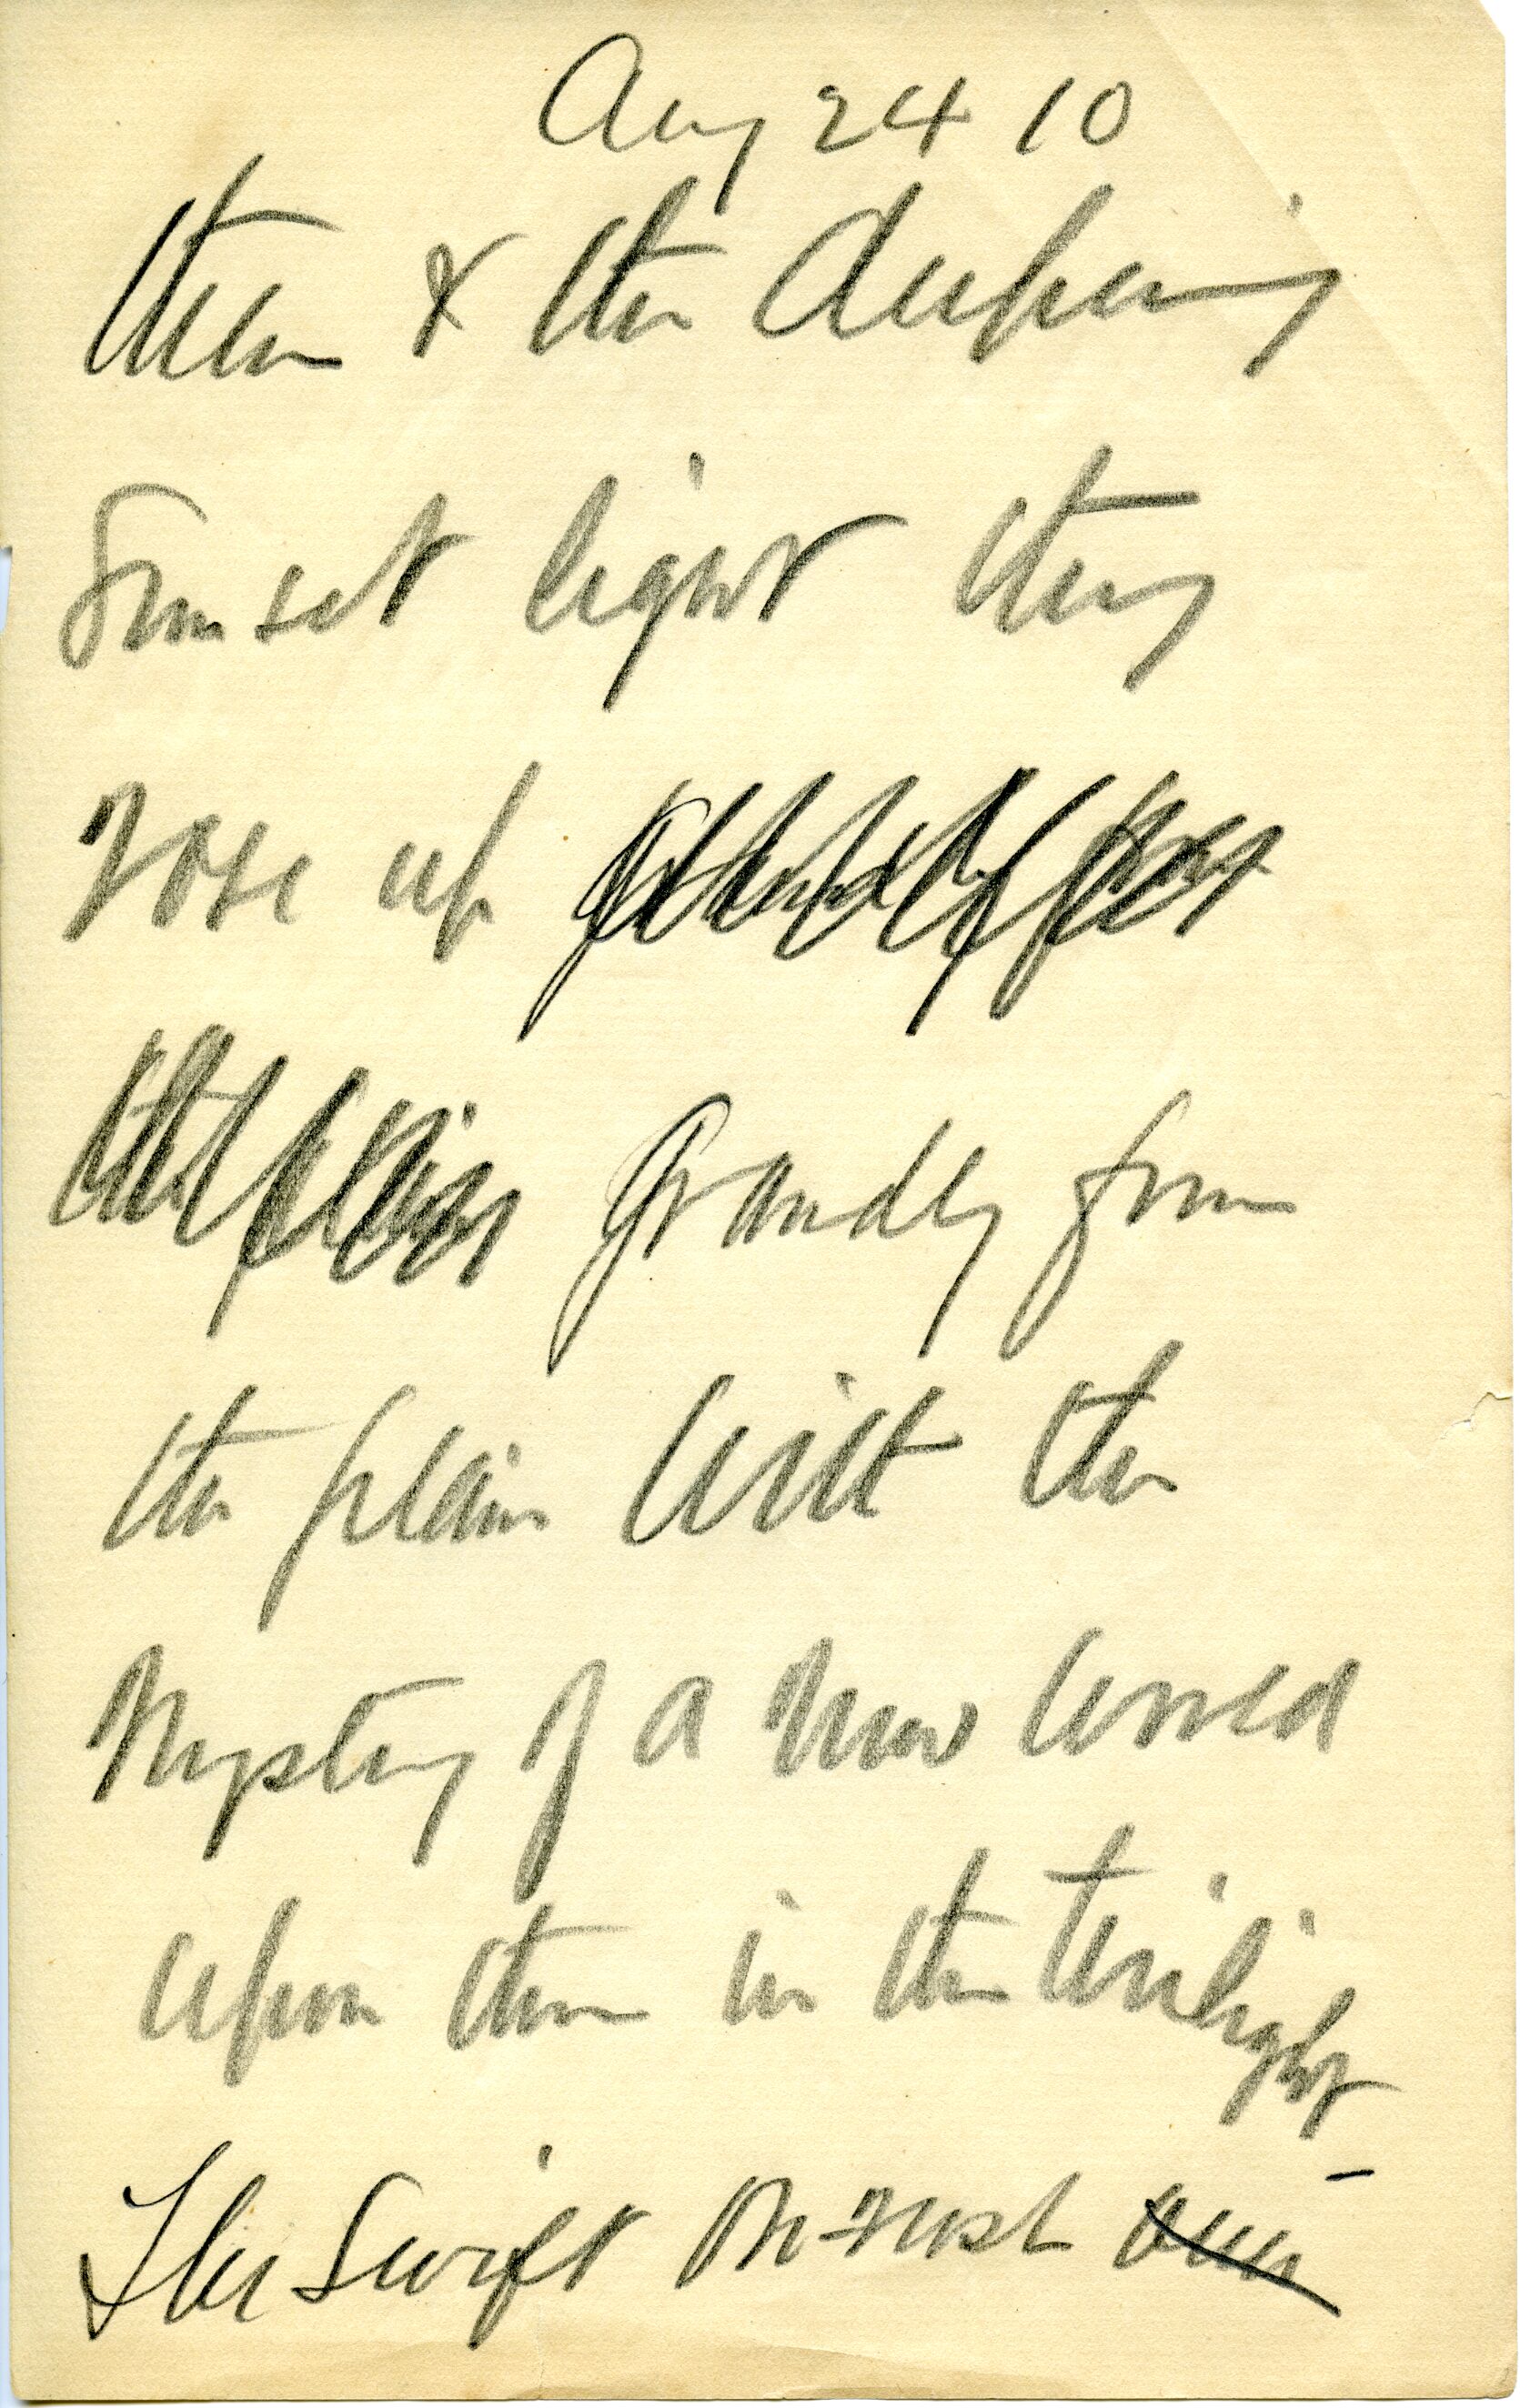 Aug 24 10
them & the deepening
Sunset light they
rose up
the plain Grandly from
the plain with the
Mystery of a new world
upon them in the twilight
The Swift on-rush over